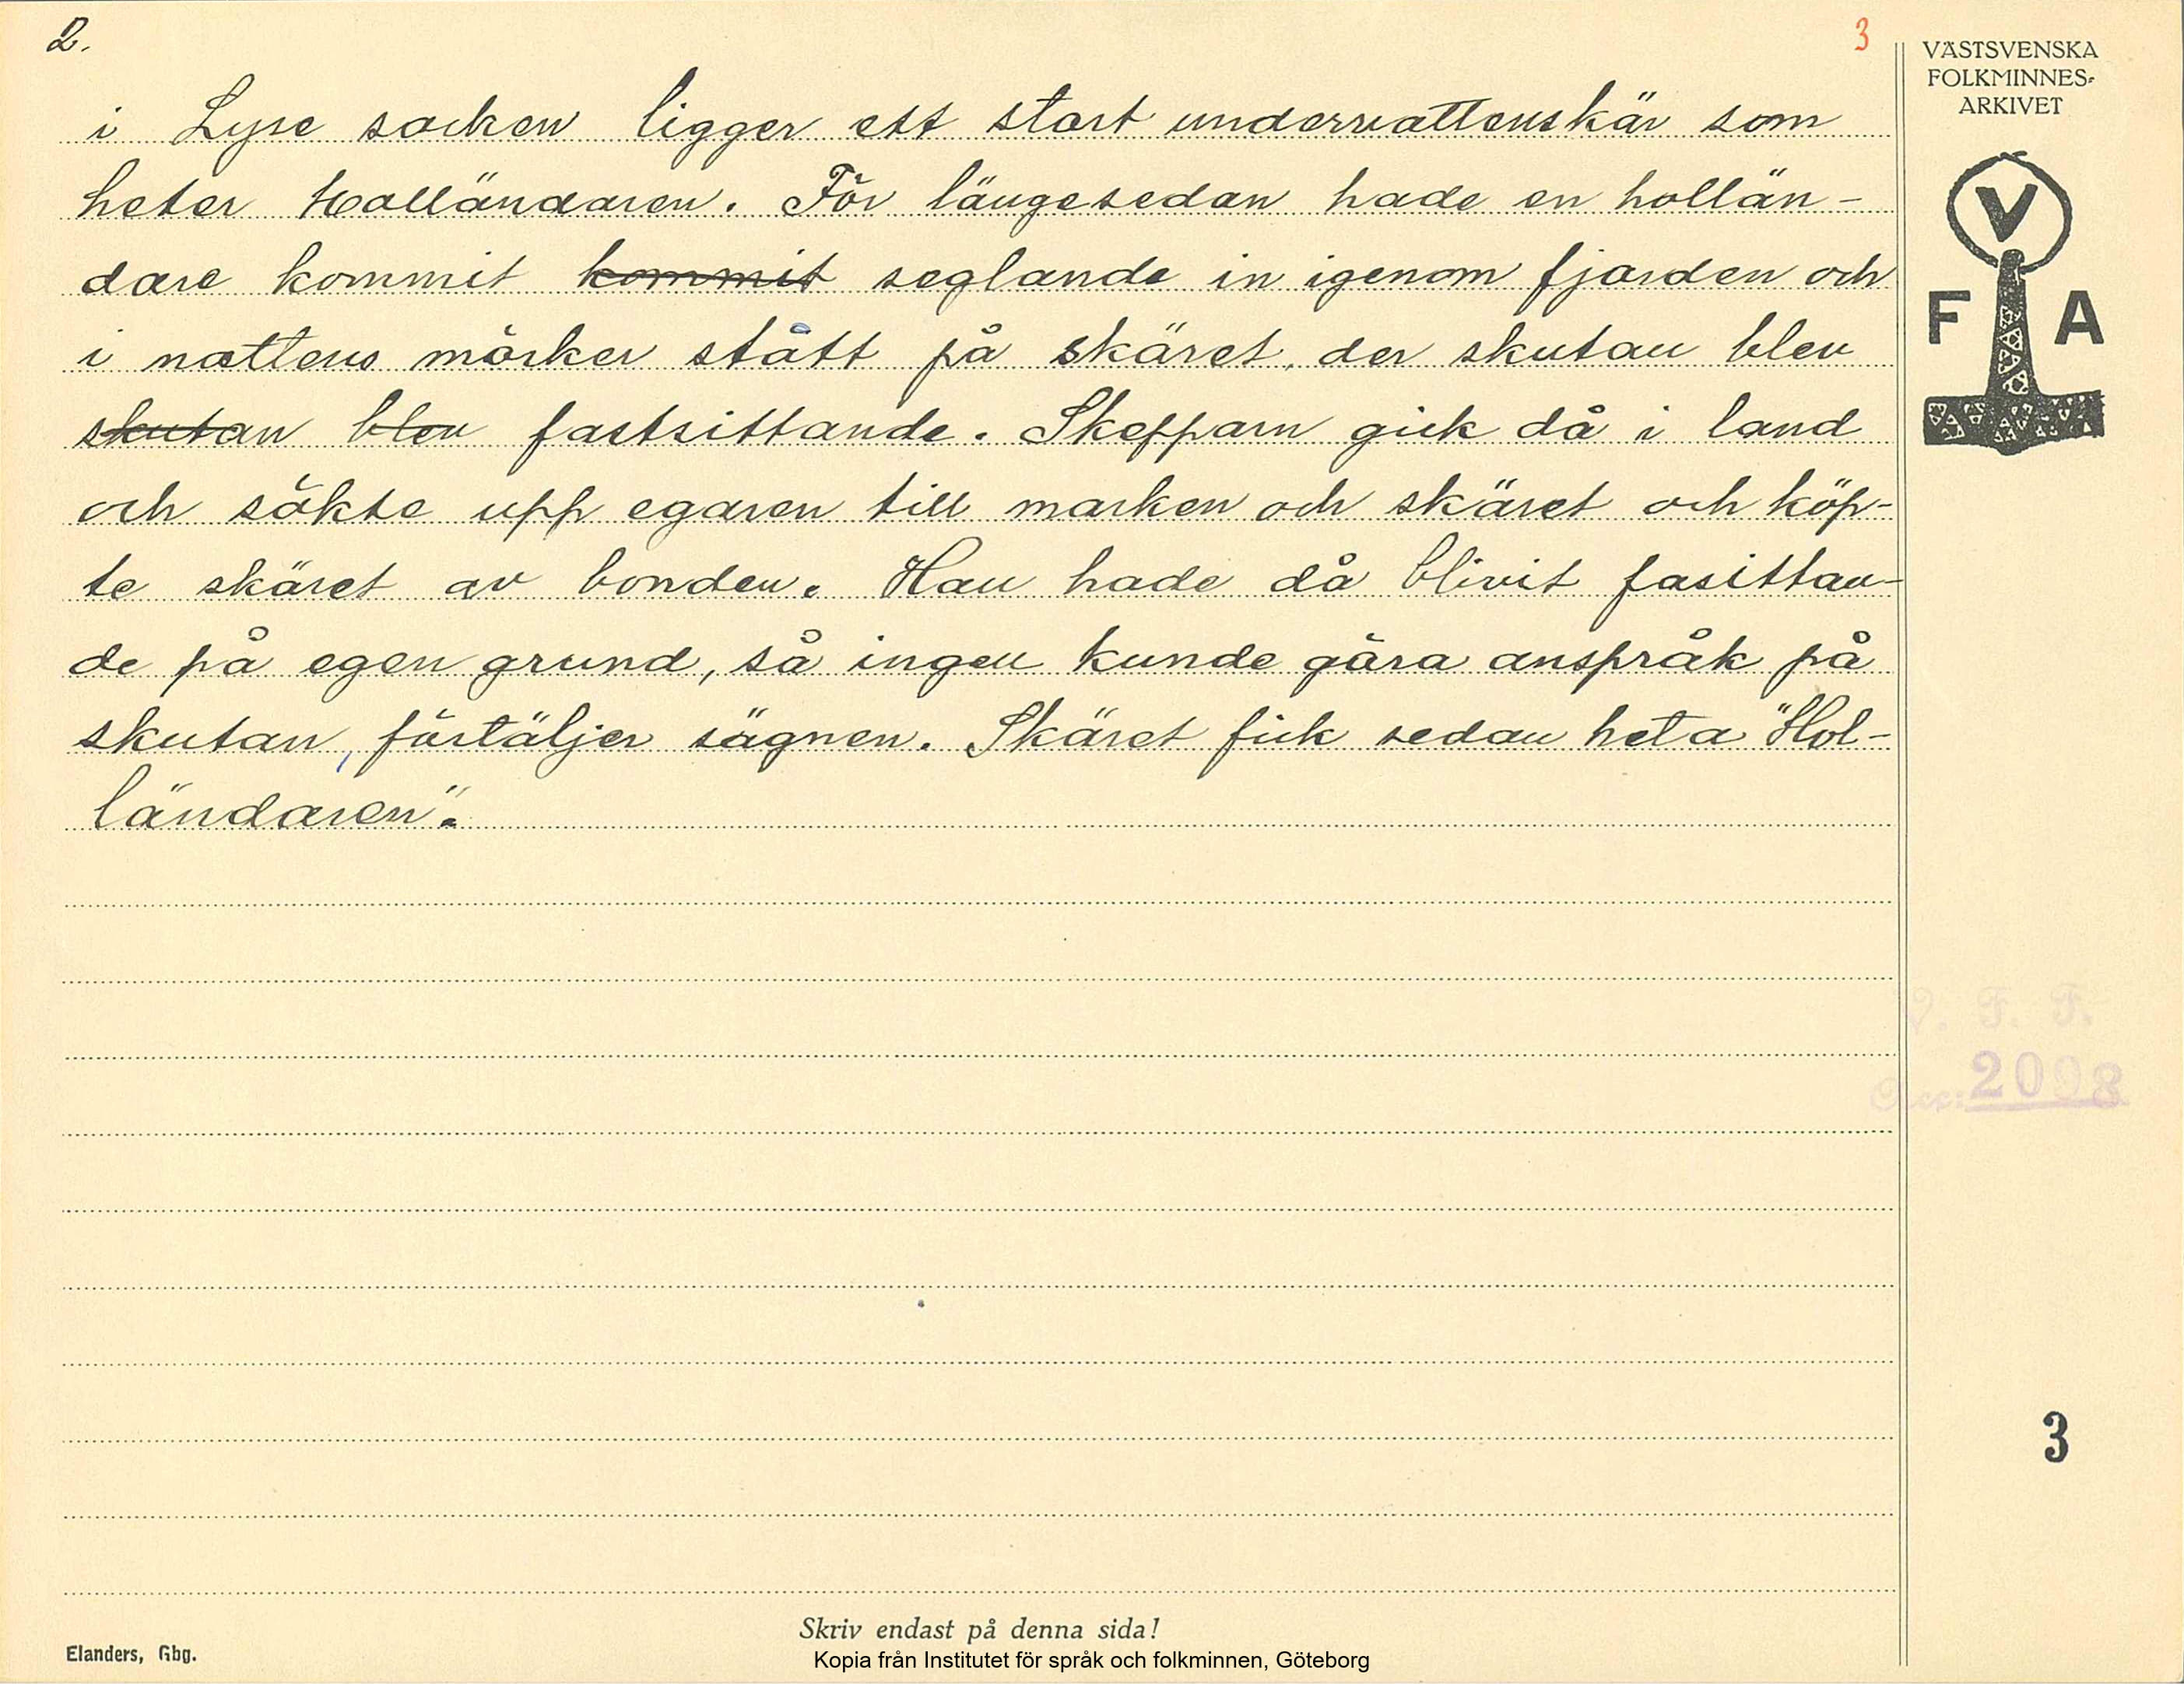 2.
3
VÄSTSVENSKA
FOLKMINNES-
ARKIVET
V
F A
i Lyse socken ligger ett stort undervattenskär som
heter Holländaren. För längesedan hade en hollän-
dare kommit kommit seglande in igenom fjorden och
i nattens mörker stått på skäret, der skutan blev
skutan blev fastsittande. Skepparn gick då i land
och sökte upp egaren till marken och skäret och köp-
te skäret av bonden. Han hade då blivit fasittan-
de på egen grund, så ingen kunde göra anspråk på
skutan, förtäljer sägnen. Skäret fick sedan heta "Hol-
ländaren".
V. F. F.
Acc: 2098
3
Skriv endast på denna sida!
Elanders, Gbg.
Kopia från Institutet för språk och folkminnen, Göteborg